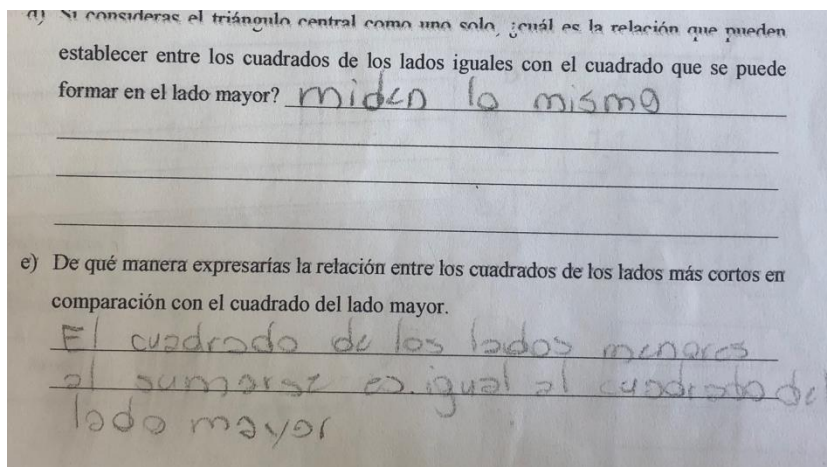 d) Si consideras el triángulo central como uno solo, ¿cuál es la relación que pueden
establecer entre los cuadrados de los lados iguales con el cuadrado que se puede
formar en el lado mayor? miden lo mismo
e) De qué manera expresarías la relación entre los cuadrados de los lados más cortos en
comparación con el cuadrado del lado mayor.
El cuadrado de los lados menores
al sumarse es igual al cuadrado del
lado mayor